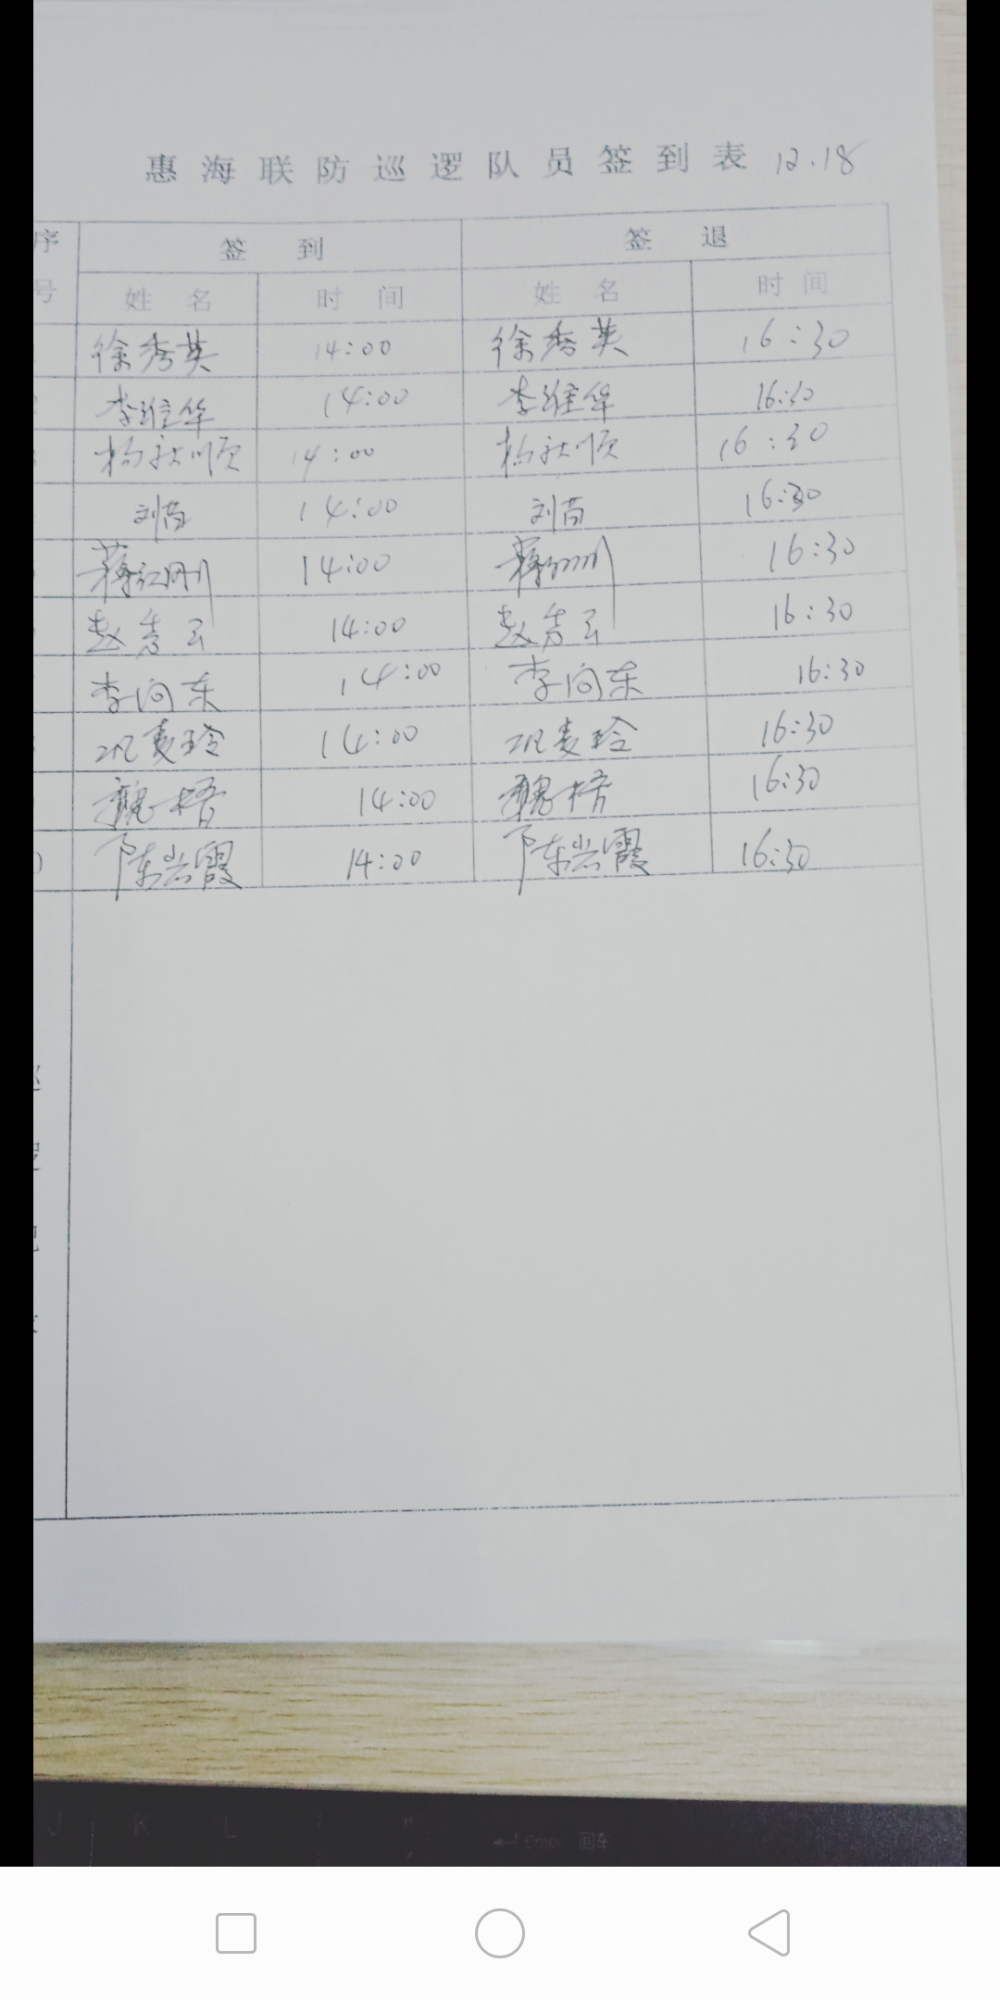 惠海联防巡逻队员签到表 12.18
序号 签到 签退
姓名 时间 姓名 时间
徐秀英 14:00 徐秀英 16:30
李维华 14:00 李维华 16:30
杨 顺 14:00 杨 顺 16:30
刘茵 14:00 刘茵 16:30
蒋红刚 14:00 蒋 刚 16:30
赵秀云 14:00 赵秀云 16:30
李向东 14:00 李向东 16:30
巩麦玲 14:00 巩麦玲 16:30
魏梧 14:00 魏梧 16:30
陈兴霞 14:00 陈兴霞 16:30
J K L Enter 回车